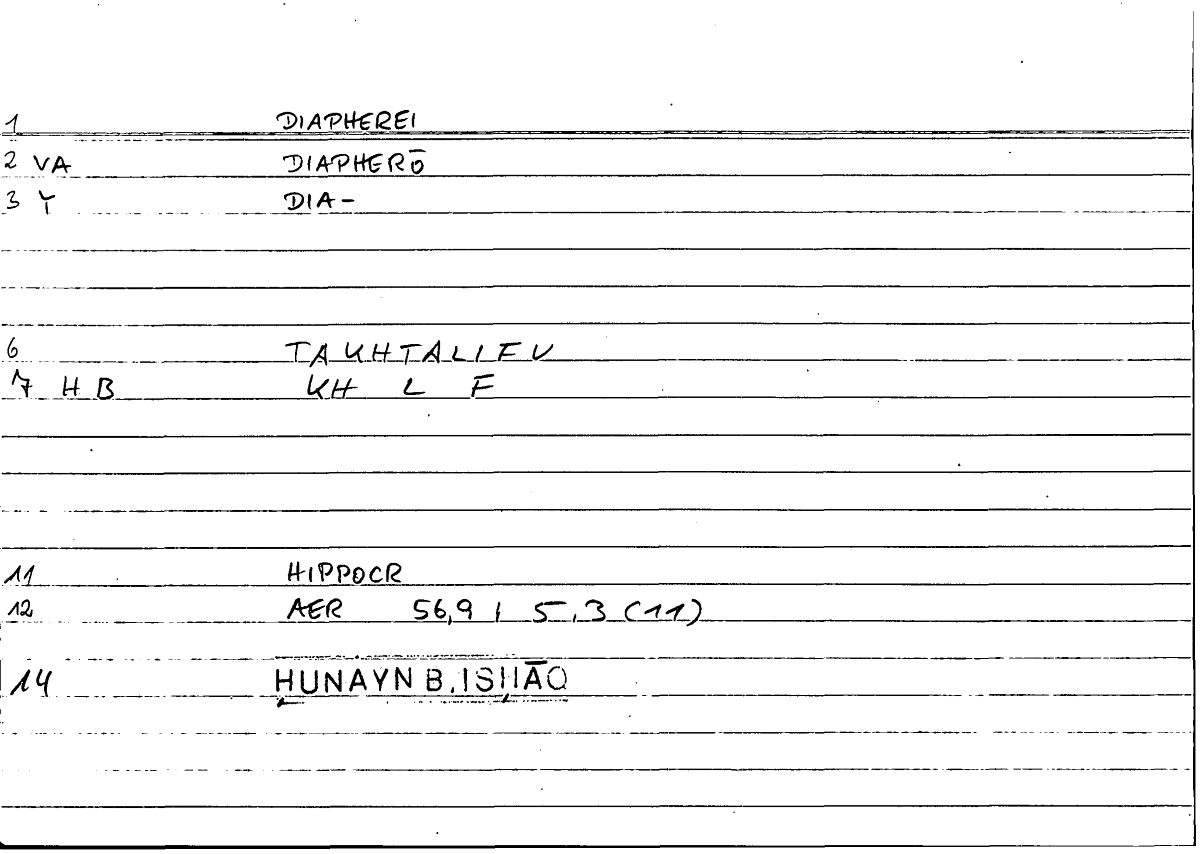 1 DIAPHEREI
2 VA DIAPHERŌ
3 Y DIA-
6 TAKHTALIFU
7 H B KH L F
11 HIPPOCR
12 AER 56,9 ; 5,3 (11)
14 ḤUNAYN B. ISḤĀQ